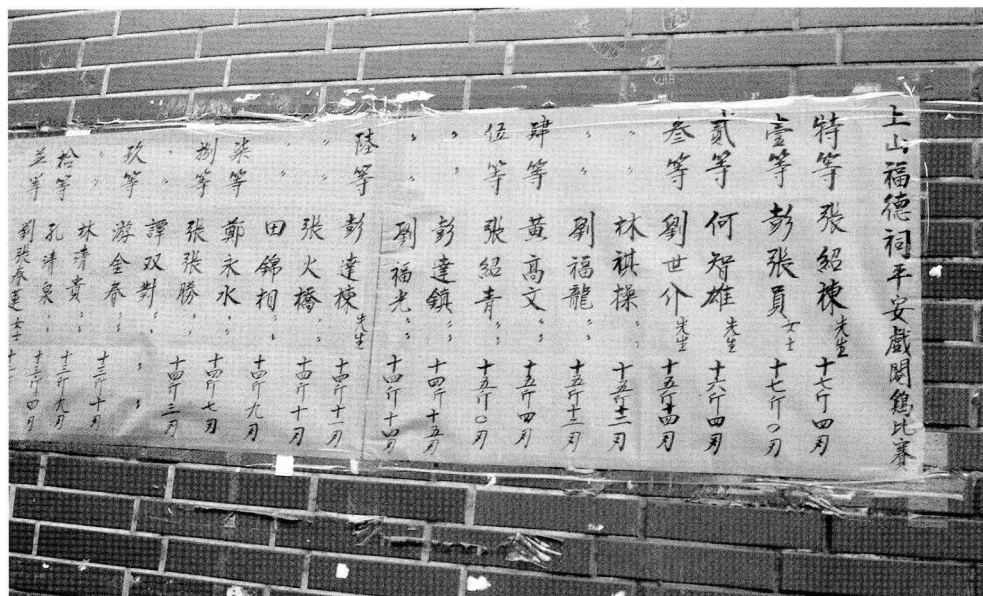 上山福德祠平安戲閹鷄比賽
特等 張紹棟先生 十七斤四刃
壹等 彭張員女士 十七斤〇刃
貳等 何智雄先生 十六斤四刃
叁等 劉世介先生 十五斤十四刃
〃 〃 林祺操〃 十五斤十二刃
〃 〃 劉福龍〃 十五斤十三刃
肆等 黃高文〃 十五斤四刃
伍等 張紹青〃 十五斤〇刃
〃 〃 彭達鎮〃 十四斤十五刃
〃 〃 劉福光〃 十四斤十四刃
陸等 彭達棟先生 十四斤十一刃
〃 〃 張火橋〃 十四斤十刃
〃 〃 田錦相〃 十四斤九刃
柒等 鄭永水〃 十四斤七刃
捌等 張張勝〃 十四斤三刃
〃 〃 譚双對〃 〃 〃
玖等 游金春〃
〃 林清貴〃 十三斤十刃
拾等 孔清泉〃 十三斤九刃
並等 劉張春蓮女士 十三斤四刃